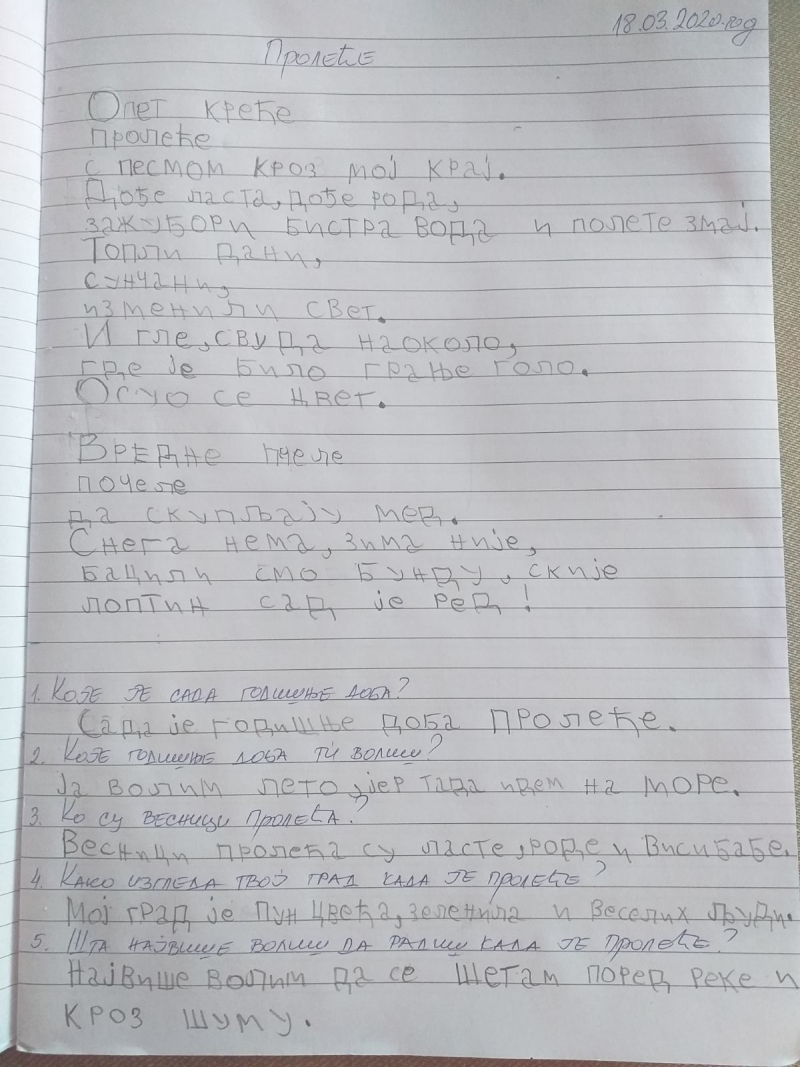 18.03.2020.год
Пролеће
Опет креће
пролеће
с песмом кроз мој крај.
Дође ласта, дође рода,
зажубори бистра вода и полете змај.
Топли дани,
сунчани,
изменили свет.
И гле, свуда наоколо,
где је било грање голо.
Осуо се цвет.
Вредне пчеле
почеле
да скупљају мед.
Снега нема, зима није,
бацили смо бунду, скије
лоптин сад је ред!
1. Које је сада годишње доба?
Сада је годишње доба пролеће.
2. Које годишње доба ти волиш?
Ја волим лето, јер тада идем на море.
3. Ко су весници пролећа?
Весници пролећа су ласте, роде и висибабе.
4. Како изгледа твој град када је пролеће?
Мој град је пун цвећа, зеленила и веселих људи.
5. Шта највише волиш да радиш када је пролеће?
Највише волим да се шетам поред реке и
кроз шуму.